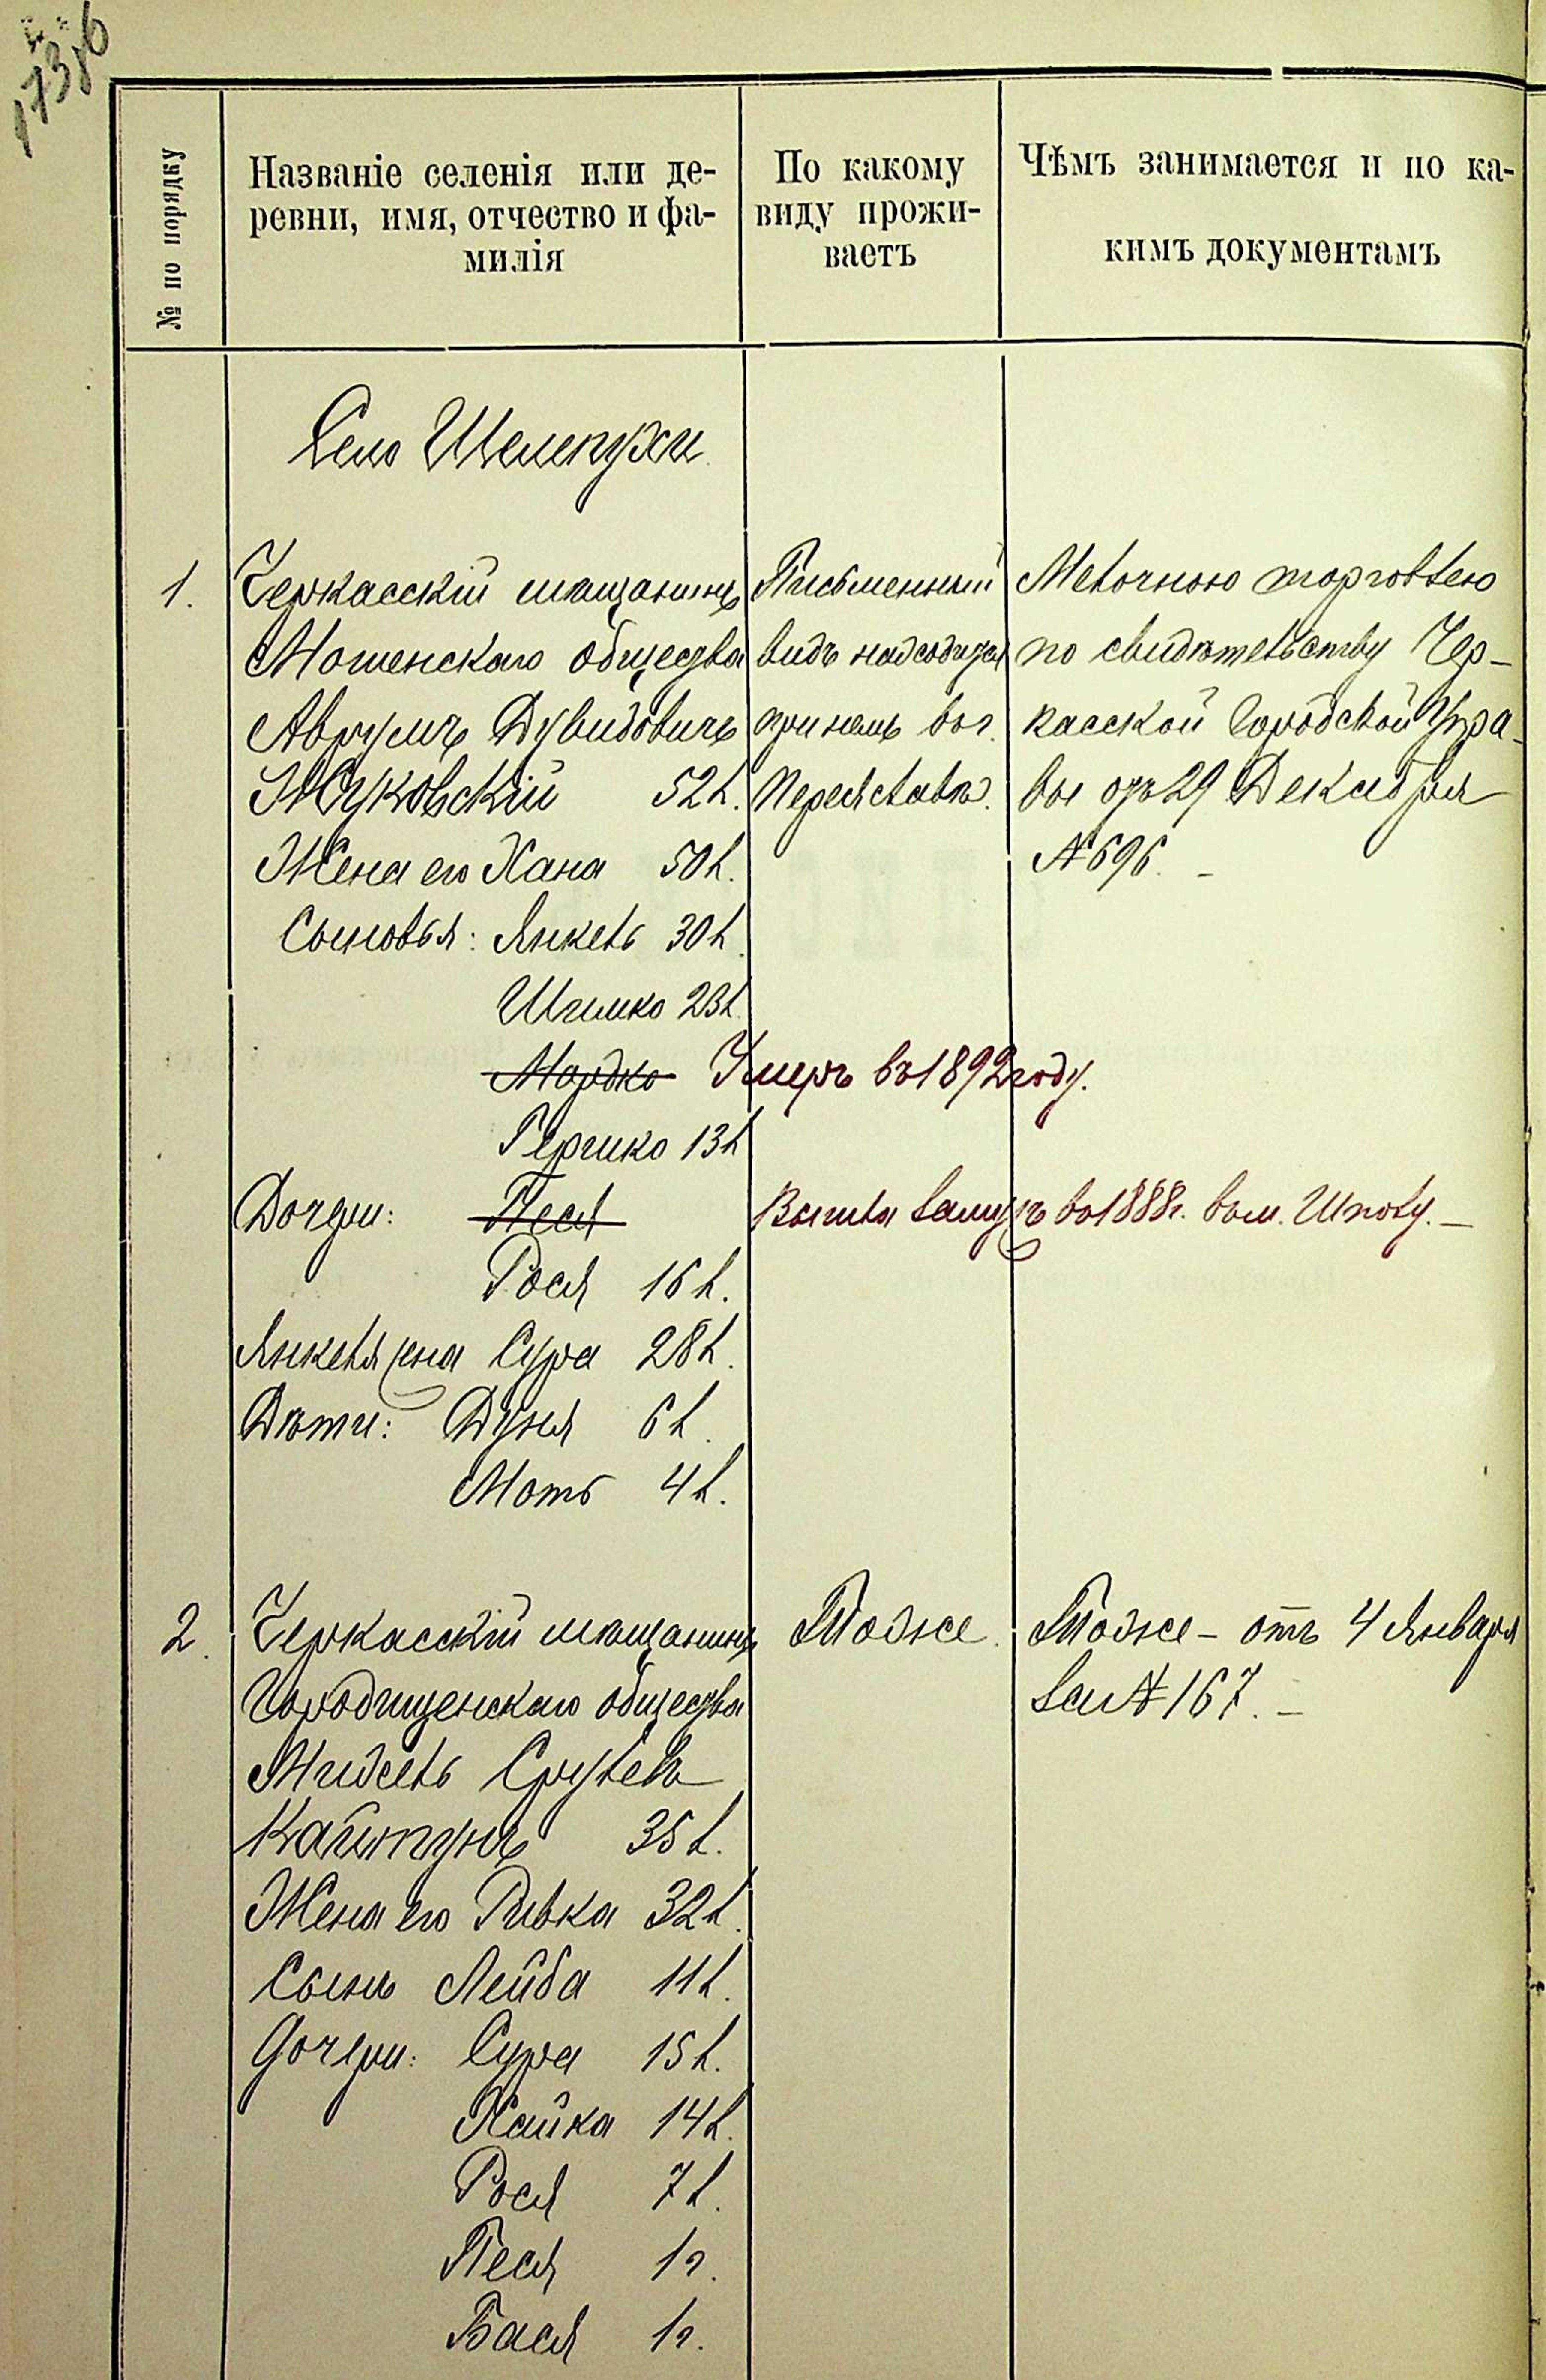 № по порядку
Названіе селенія или де-
ревни, имя, отчество и фа-
милія
По какому
виду прожи-
ваетъ
Чѣмъ занимается и по ка-
кимъ документамъ
Село Шелепухи
1.
Черкасскій мѣщанинъ
Мошенскаго общества
Аврумъ Дувидовичъ
Жуковскій 52 л.
Жена его Хана 50 л.
Сыновья: Янкель 30 л.
Шимко 23 л.
Мордко Умеръ въ 1892 году.
Гершко 13 л.
Дочери: Песя Вышла замужъ въ 1888 г. въ м. Шполу. —
Рося 16 л.
Янкеля жена Сура 28 л.
Дѣти: Дуня 6 л.
Моть 4 л.
Письменный
видъ находится
при немъ въ г.
Переяславѣ.
Мелочною торговлею
по свидѣтельству Чер-
касской Городской Упра-
вы отъ 29 Декабря
№ 696. —
2.
Черкасскій мѣщанинъ
Городищенскаго общества
Мидель Срулевъ
Кайтунъ 35 л.
Жена его Ривка 32 л.
Сынъ Лейба 11 л.
Дочери: Сура 15 л.
Хайка 14 л.
Рося 7 л.
Песя 1 г.
Бася 1 г.
Тоже.
Тоже — отъ 4 Января
за № 167. —